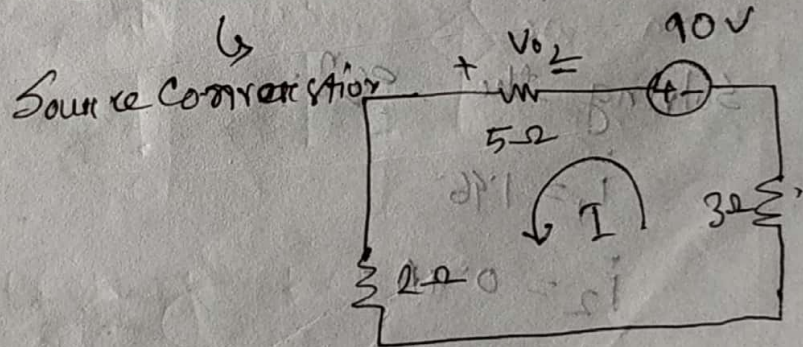 ↳
Source Conversation
+ V₀₂ - 90V
5Ω
+-
I
3Ω
2Ω